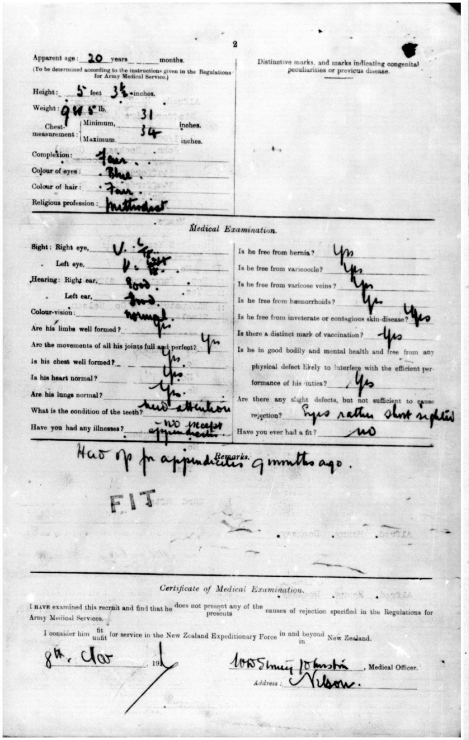 2
Apparent age: 20 years months.
(To be determined according to the instructions given in the Regulations
for Army Medical Service.)
Height: 5 feet 3½ inches.
Weight: 9 st 5 lb.
Chest measurement: Minimum, 31 inches.
Maximum, 34 inches.
Complexion: Fair.
Colour of eyes: Blue.
Colour of hair: Fair.
Religious profession: Methodist
Distinctive marks, and marks indicating congenital
peculiarities or previous disease.
Medical Examination.
Sight: Right eye, V. 6
Left eye, V.
Hearing: Right ear, Good
Left ear, Good
Colour-vision: normal
Are his limbs well formed? Yes
Are the movements of all his joints full and perfect? Yes
Is his chest well formed? Yes
Is his heart normal? Yes
Are his lungs normal? Yes.
What is the condition of the teeth? need attention
Have you had any illnesses? no except
appendicitis
Is he free from hernia? Yes
Is he free from varicocele? Yes
Is he free from varicose veins? Yes
Is he free from hæmorrhoids? Yes
Is he free from inveterate or contagious skin-disease? Yes
Is there a distinct mark of vaccination? Yes
Is he in good bodily and mental health and free from any
physical defect likely to interfere with the efficient per-
formance of his duties? Yes
Are there any slight defects, but not sufficient to cause
rejection? Eyes rather short sighted
Have you ever had a fit? no
Remarks.
Had op for appendicitis 9 months ago.
FIT
Certificate of Medical Examination.
I HAVE examined this recruit and find that he does not present any of the / presents causes of rejection specified in the Regulations for
Army Medical Services.
I consider him fit / unfit for service in the New Zealand Expeditionary Force in and beyond / in New Zealand.
8th. Nov , 191
Johnston, Medical Officer.
Address: Nelson.